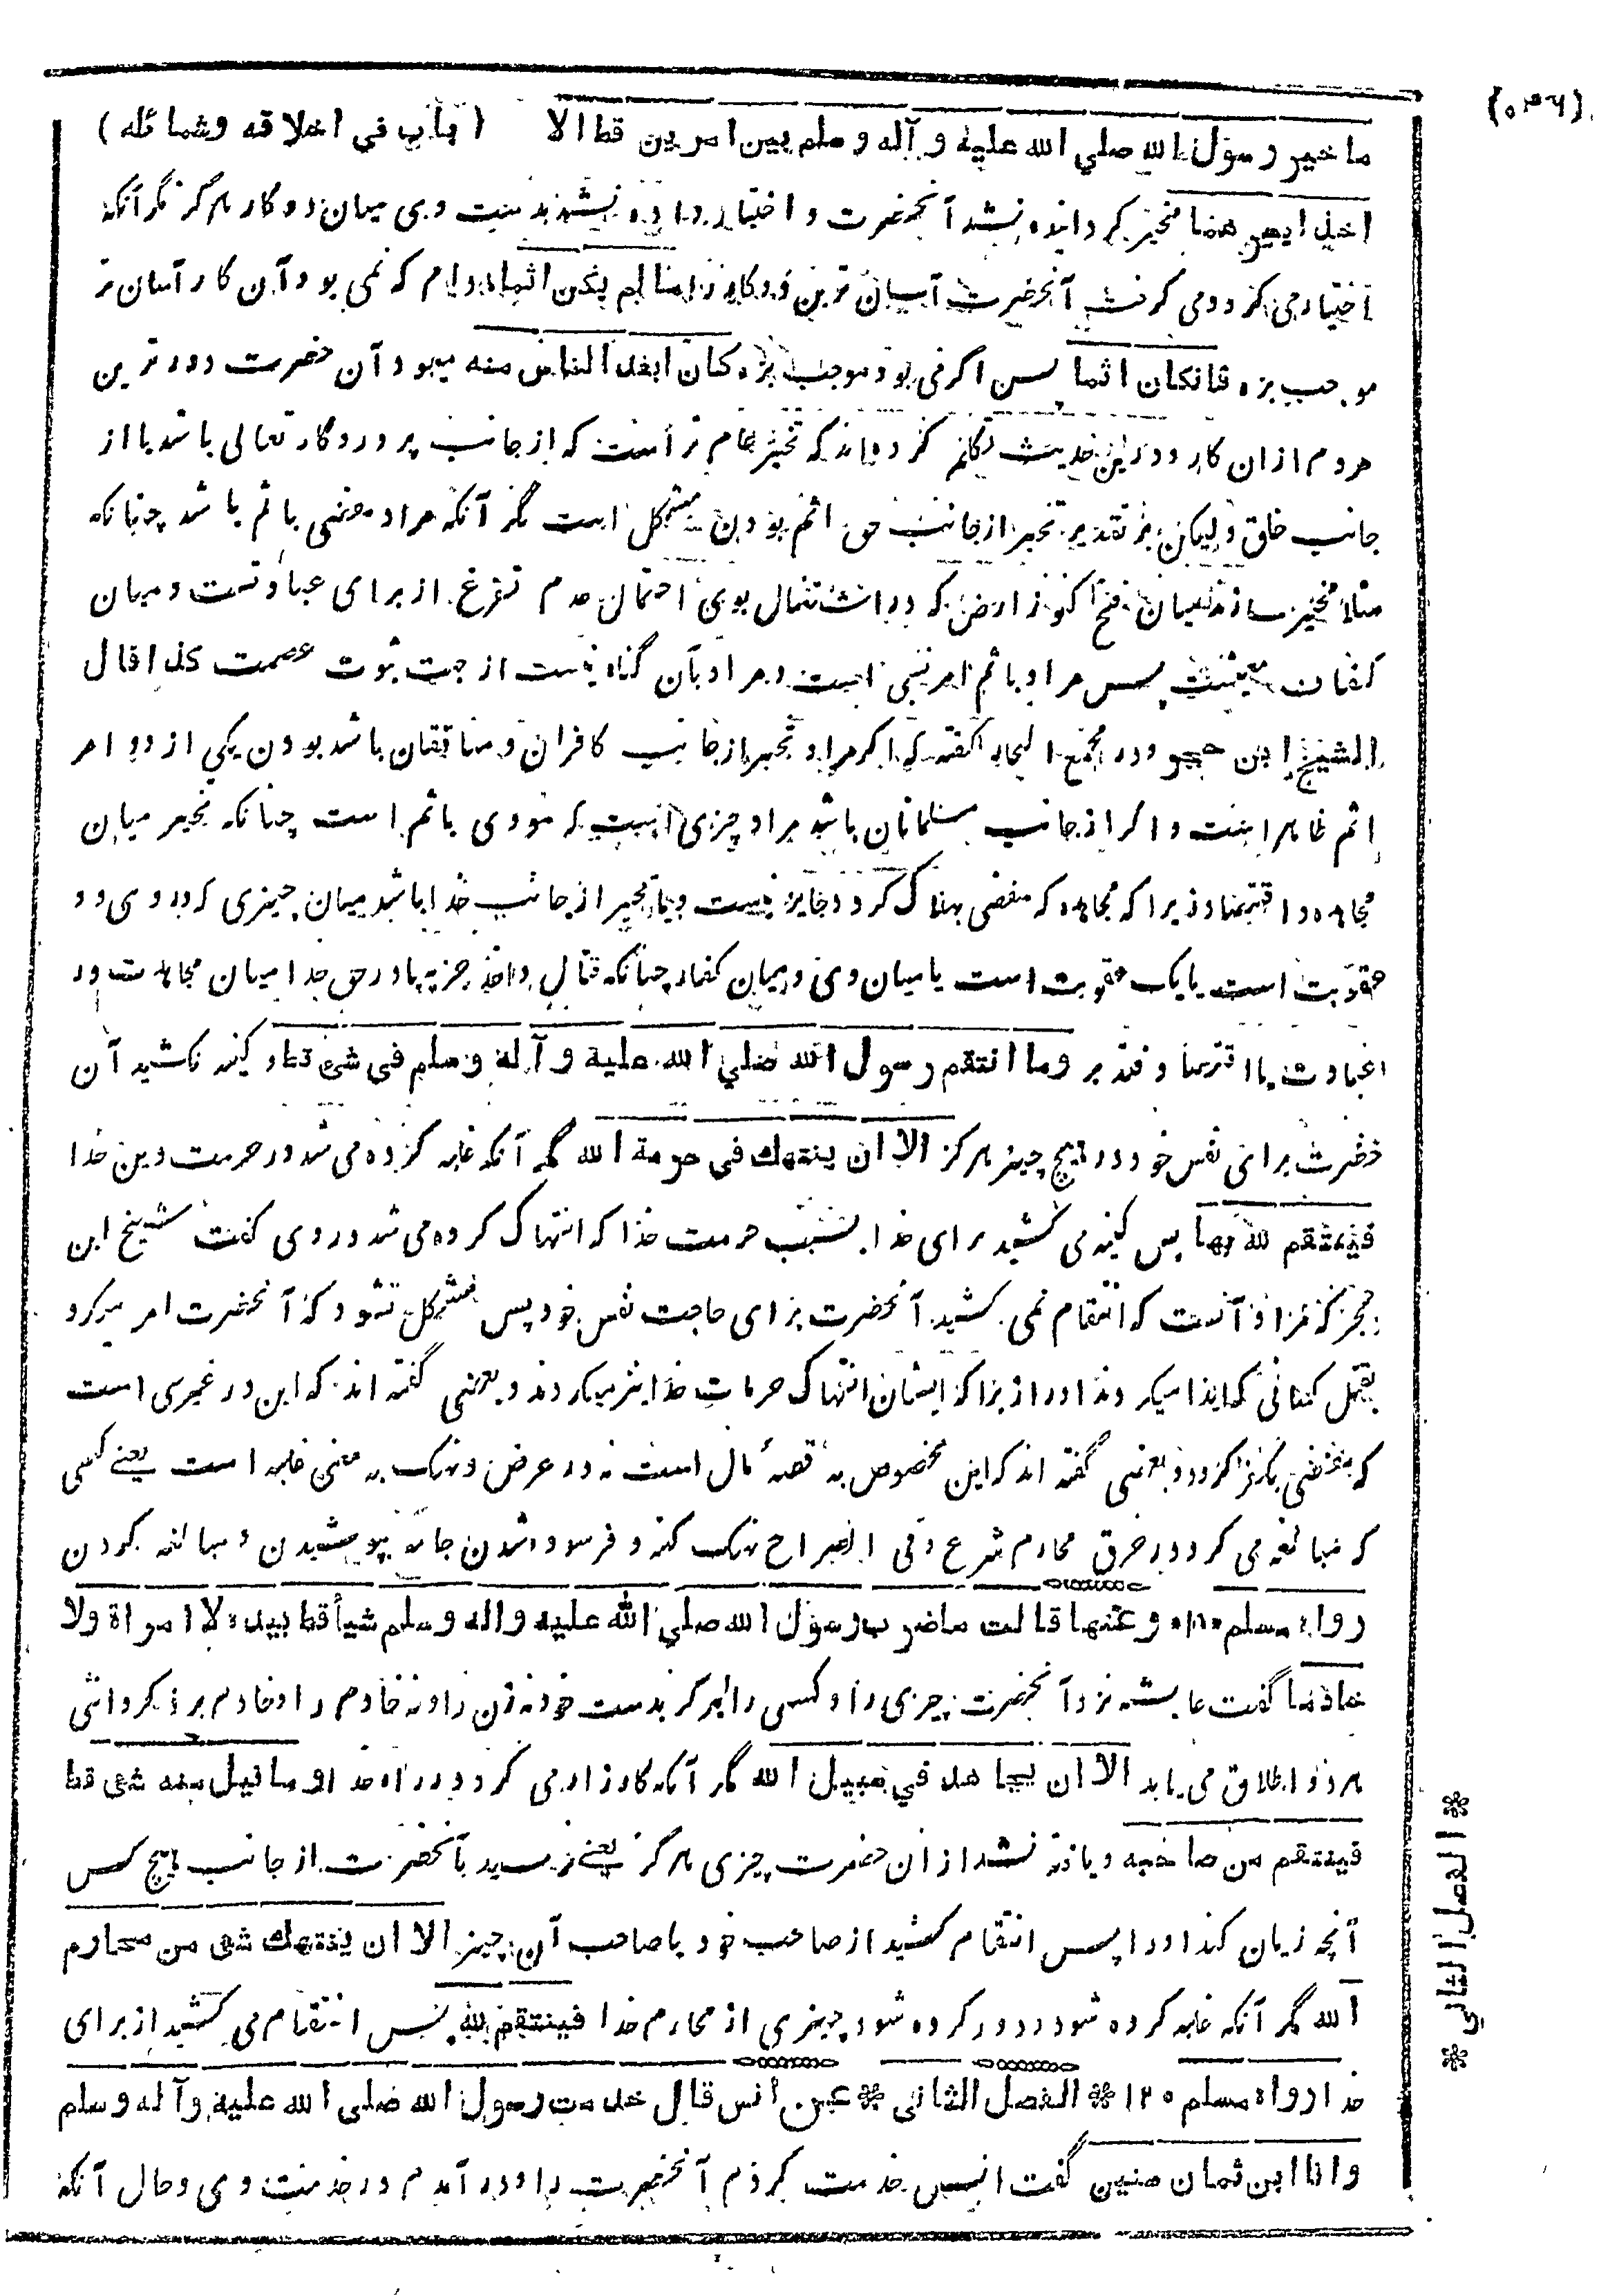 (باب في اخلاقه وشمائله)
ما خير رسول الله صلي الله عليه و آله و سلم بين امرين قط الا
اخذ ايسرهما مخير گردانیده نشد آنحضرت و اختیار داده نشد بدست وی میان دو کار هرگز مگر آنکه
اختیار می کرد و می گرفت آنحضرت آسان ترین دو کار را ما لم يكن اثما مادام که نمی بود آن کار آسان تر
موجب بزه فان كان اثما پس اگر می بود موجب بزه كان ابعد الناس منه میبود آن حضرت دور ترین
مردم ازان کار و درین حدیث تکلم کرده اند که تخییر عام تر است که از جانب پروردگار تعالی باشد یا از
جانب خلق و لیکن بر تقدیر تخییر از جانب حق اثم بودن مشکل است مگر آنکه مراد مفضی باثم باشد چنانکه
مثلا مخیر سازند میان فتح کنوز ارض که در اشتغال بوی احتمال عدم تفرغ از برای عبادتست و میان
کفاف معیشت پس مراد باثم امر نسبی است و مراد بآن گناه نیست از جهت ثبوت عصمت كذا قال
الشيخ ابن حجر و در مجمع البحار گفته که اگر مراد تخییر از جانب کافران و منافقان باشد بودن یکی از دو امر
اثم ظاهر است و اگر از جانب مسلمانان باشد مراد چیزی است که مودی باثم است چنانکه تخییر میان
مجاهده و اقتصاد زیرا که مجاهده که مفضی بهلاک گردد جایز نیست و یا تخییر از جانب خدا باشد میان چیزی که در وی دو
عقوبت است یا یک عقوبت است یا میان وی و میان کفار چنانکه قتال و اخذ جزیه یا در حق خدا میان مجاهدت در
عبادت یا اقتصاد فتدبر وما انتقم رسول الله صلي الله عليه و آله و سلم في شيء قط و کینه نکشید آن
حضرت برای نفس خود در هیچ چیز هرگز الا ان ينتهك في حرمة الله مگر آنکه غلبه کرده می شد در حرمت دین خدا
فينتقم لله بها پس کینه می کشید برای خدا بسبب حرمت خدا که انتهاک کرده می شد در وی گفت شیخ ابن
حجر که مراد آنست که انتقام نمی کشید آنحضرت برای حاجت نفس خود پس مشکل نشود که آنحضرت امر میکرد
بقتل کسانی که ایذا میکردند او را زیرا که ایشان انتهاک حرمات خدا نیز میکردند و بعضی گفته اند که این در غیر سبی است
که مفضی بکفر گردد و بعضی گفته اند که این مخصوص به قصهٔ مال است نه در عرض و نهک به معنی غلبه است یعنے کسی
که مبالغه می کرد در خرق محارم شرع و فی الصراح نهک کهنه و فرسوده شدن جامه پوشیدن و مبالغه کردن
رواه مسلم وعنها قالت ما ضرب رسول الله صلي الله عليه واله وسلم شيأ قط بيده ولا امراة ولا
خادما گفت عایشه نزد آنحضرت چیزی را و کسی را هرگز بدست خود نه زن را و نه خادم را و خادم بر ذکر و انثی
هر دو اطلاق می یابد الا ان يجاهد في سبيل الله مگر آنکه کارزار می کرد در راه خدا وما نيل منه شي قط
فينتقم من صاحبه و یافته نشد ازان حضرت چیزی هرگز یعنے نرسید بآنحضرت از جانب هیچ کس
آنچه زیان کند او را پس انتقام کشید از صاحب خود یا صاحب آن چیز الا ان ينتهك شي من محارم
الله مگر آنکه غلبه کرده شود و دور کرده شود چیزی از محارم خدا فينتقم لله پس انتقام می کشید از برای
خدا رواه مسلم ❊ الفصل الثاني ❊ عن انس قال خدمت رسول الله صلي الله عليه وآله وسلم
وانا ابن ثمان سنين گفت انس خدمت کردم آنحضرت را و در آمدم در خدمت وی و حال آنکه
❊ الفصل الثاني ❊